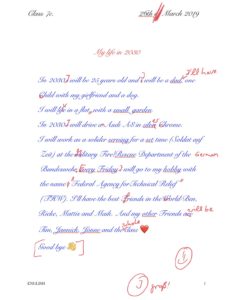 Class 7c. 26th March 2019
My life in 2030
I'll have
In 2030 I will be 25 years old and I will be a dad, one
Child with my girlfriend and a dog.
I will life in a flat, with a small garden.
In 2030 I will drive a Audi A8 in Chrome.
I will work as a soldier serving for a set time (Soldat auf
Zeit) at the Military Fire/Rescue Department of the German
Bundeswehr. Every Friday I will go to my hobby with
the name "Federal Agency for Technical Relief"
(THW). I'll have the best friends in the World Ben,
Rieke, Mattis and Maik. And my other Friends are will be
Tim, Jannick, Jonne and the whole Class ❤️
Good bye 👋
1